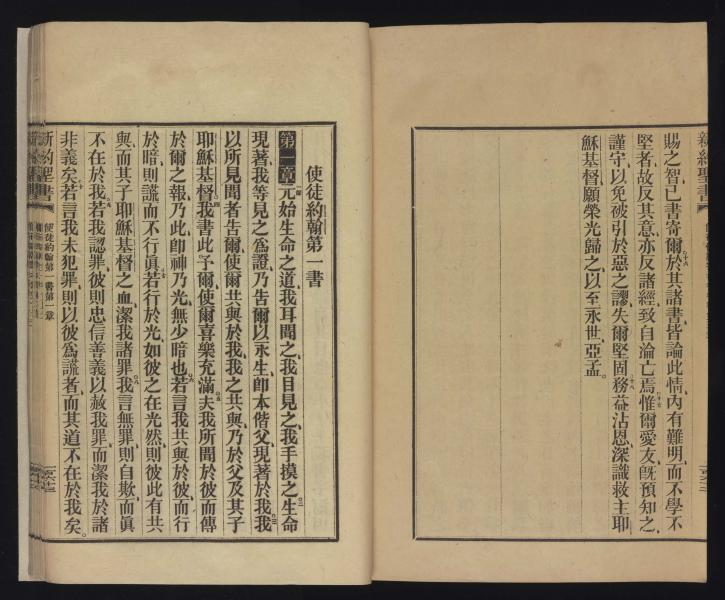 新約聖書
賜之智已書寄爾於其諸書皆論此情內有難明而不學不
堅者故反其意亦反諸經致自淪亡焉惟爾愛友旣預知之
謹守以免被引於惡之謬失爾堅固務益沾恩深識救主耶
穌基督願榮光歸之以至永世亞孟。
使徒約翰第一書
第一章元始生命之道我耳聞之我目見之我手摸之生命
現著我等見之爲證乃告爾以永生卽本偕父現著於我我
以所見聞者吿爾使爾共與於我我之共與乃於父及其子
耶穌基督我書此予爾使爾喜樂充滿夫我所聞於彼而傳
於爾之報乃此卽神乃光無少暗也若言我共與於彼而行
於暗則謊而不行眞若行於光如彼之在光然則彼此有共
與而其子耶穌基督之血潔我諸罪我言無罪則自欺而眞
不在於我若我認罪彼則忠信善義以赦我罪而潔我於諸
非義矣若言我未犯罪則以彼爲謊者而其道不在於我矣。
新約聖書
使徒約翰第一書第一章